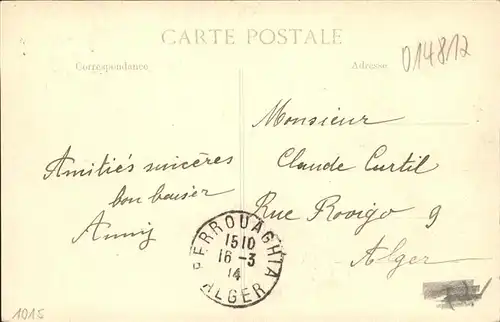 CARTE POSTALE
Correspondance
Adresse
014812
Monsieur
Claude Curtil
Rue Rovigo 9
Alger
Amitiés sincères
bon baiser
Anny
BERROUAGHIA
15 10
16 - 3
14
ALGER
1015